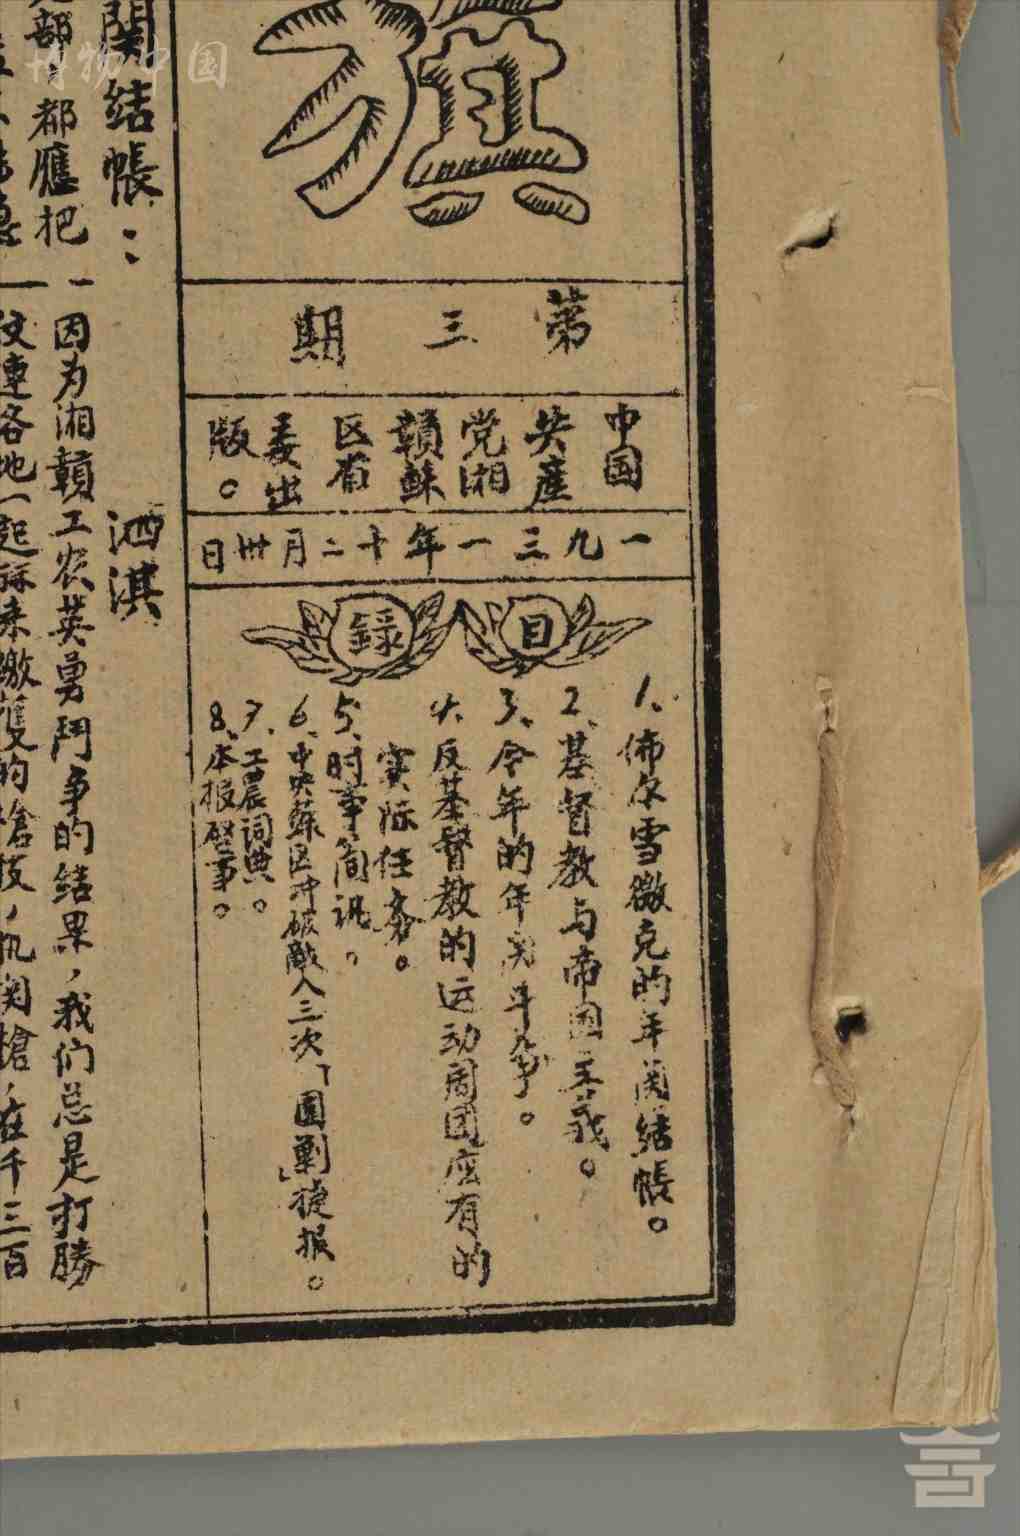 博物中国
旗
第三期
中国
共產
党湘
贛蘇
区省
委出
版。
一九三一年十二月卅日
目錄
1、佈尔雪微克的年関结帳。
2、基督教与帝国主義。
3、今年的年関斗争。
4、反基督教的运动周团应有的
实际任务。
5、时事简讯。
6、中央蘇区冲破敵人三次「围剿」捷报。
7、工農词典。
8、本报啓事。
関结帳：
泗淇
一因为湘贛工农英勇鬥争的结果，我们总是打勝
部，都應把
連各地一起算来繳獲的槍枝，机関槍，在千三百